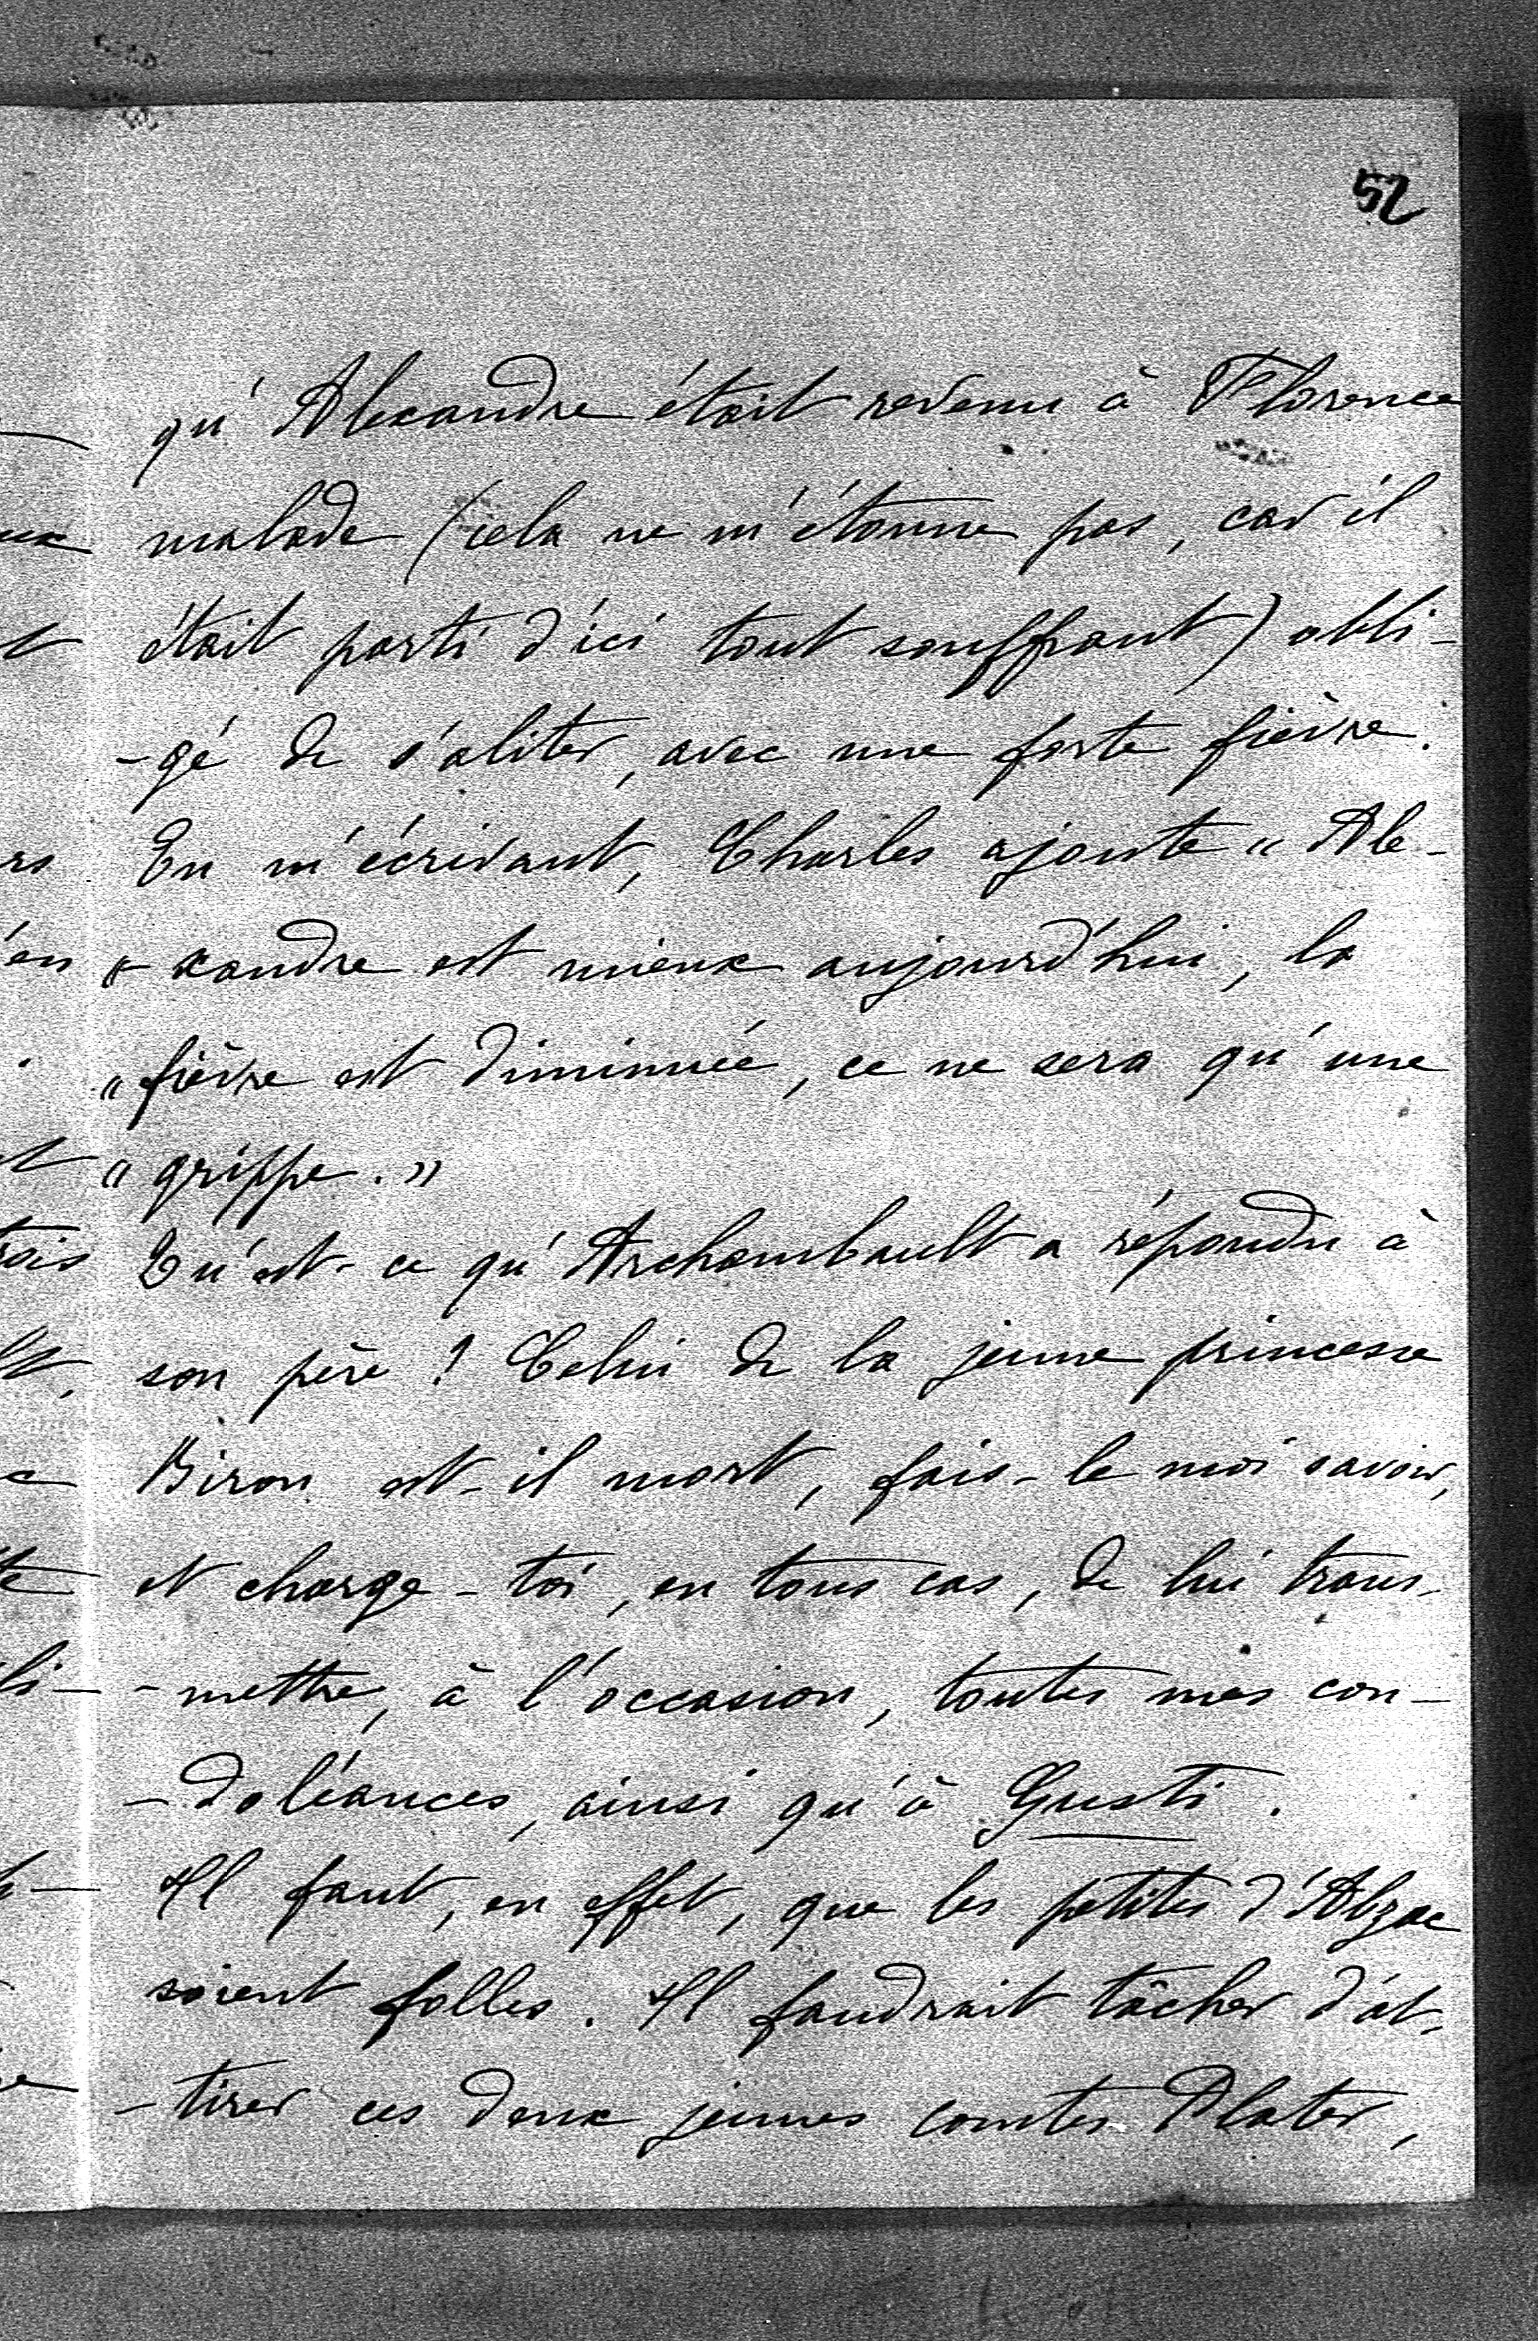 52
qu'Alexandre était revenu à Florence
malade (cela ne m'étonne pas, car il
était parti d'ici tout souffrant) obli-
-gé de s'aliter, avec une forte fièvre.
En m'écrivant, Charles ajoute « Ale-
«-xandre est mieux aujourd'hui, la
« fièvre est diminuée, ce ne sera qu'une
« grippe. »
Qu'est-ce qu'Archambault a répondu à
son père ? Celui de la jeune princesse
Biron est-il mort, fais-le moi savoir,
et charge-toi, en tous cas, de lui trans-
-mettre, à l'occasion, toutes mes con-
-doléances, ainsi qu'à Gusti.
Il faut, en effet, que les petites d'Abzac
soient folles. Il faudrait tâcher d'at-
-tirer ces deux jeunes comtes Plater,